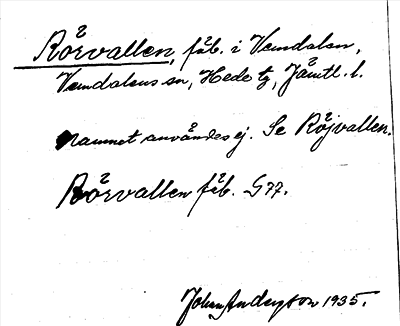 Rörvallen, fäb. i Vemdalen,
Vemdalens sn, Hede tg, Jämtl. l.
Namnet användes ej. Se Röjvallen.
Rörvallen fäb. G77.
Johan Anderson 1935.